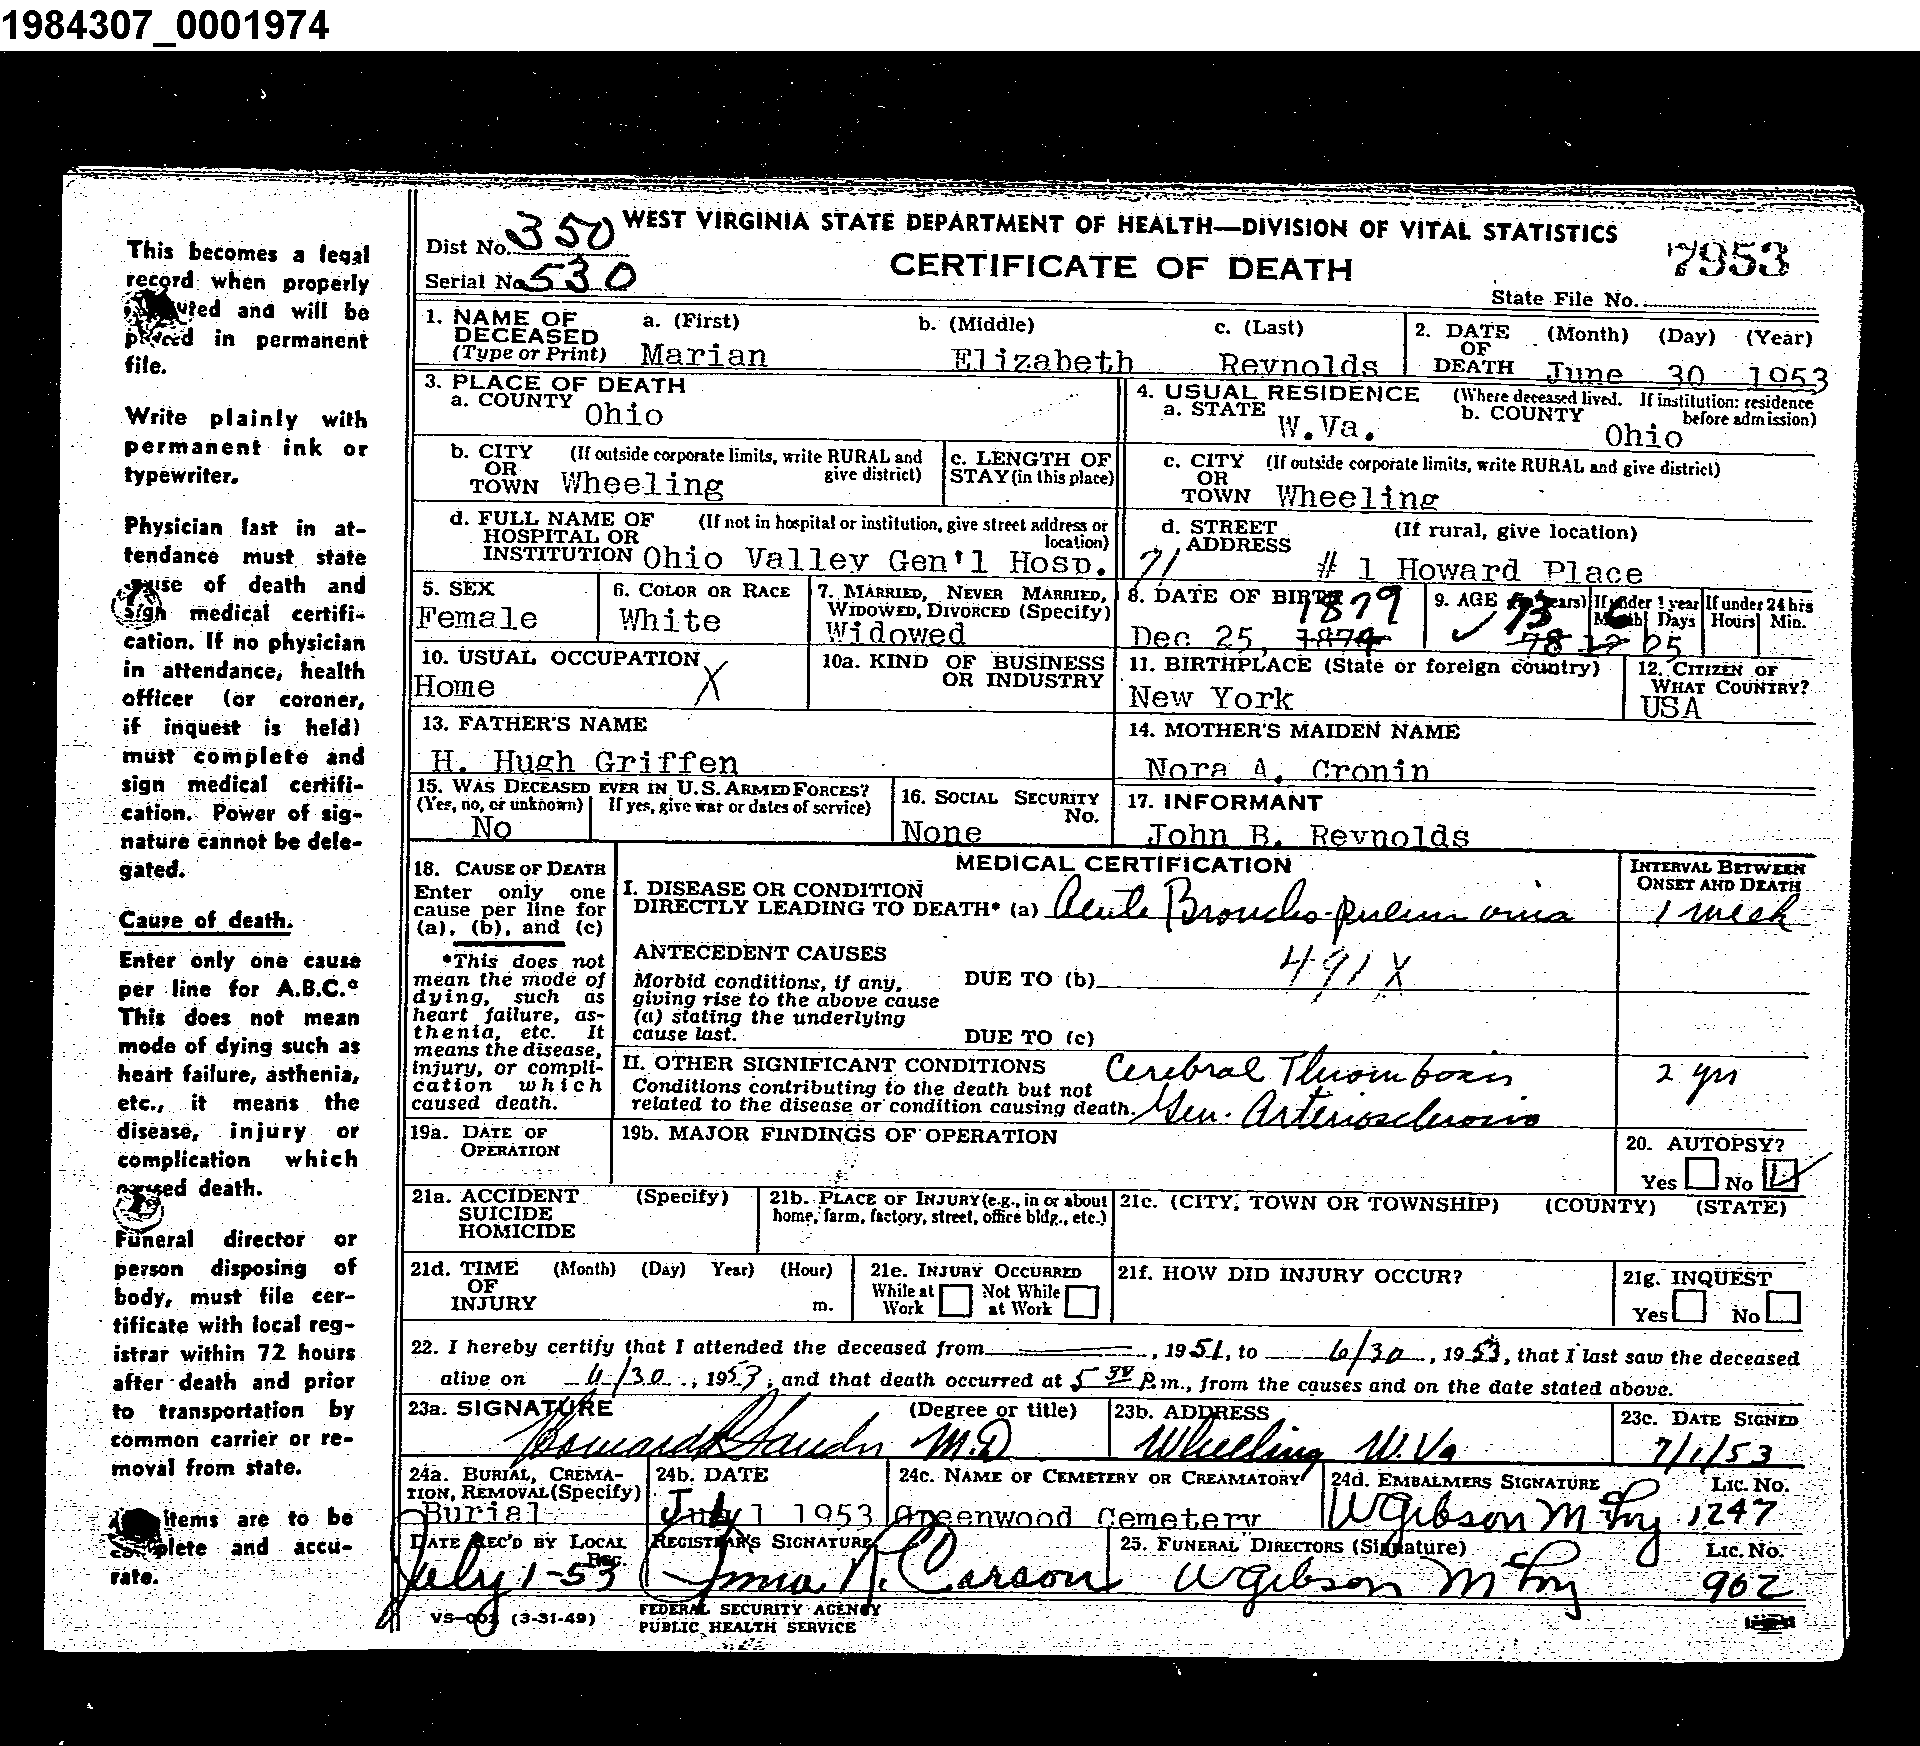 1984307_0001974
This becomes a legal
record when properly
and will be
placed in permanent
file.
Write plainly with
permanent ink or
typewriter.
Physician last in at-
tendance must state
cause of death and
sign medical certifi-
cation. If no physician
in attendance, health
officer (or coroner,
if inquest is held)
must complete and
sign medical certifi-
cation. Power of sig-
nature cannot be dele-
gated.
Cause of death.
Enter only one cause
per line for A.B.C.*
This does not mean
mode of dying such as
heart failure, asthenia,
etc., it means the
disease, injury or
complication which
caused death.
Funeral director or
person disposing of
body, must file cer-
tificate with local reg-
istrar within 72 hours
after death and prior
to transportation by
common carrier or re-
moval from state.
items are to be
complete and accu-
rate.
WEST VIRGINIA STATE DEPARTMENT OF HEALTH—DIVISION OF VITAL STATISTICS
Dist No. 350
Serial No. 530
CERTIFICATE OF DEATH
7953
State File No.
1. NAME OF DECEASED (Type or Print) a. (First) Marian b. (Middle) Elizabeth c. (Last) Reynolds
2. DATE OF DEATH (Month) (Day) (Year) June 30 1953
3. PLACE OF DEATH
a. COUNTY Ohio
4. USUAL RESIDENCE (Where deceased lived. If institution: residence before admission)
a. STATE W.Va. b. COUNTY Ohio
b. CITY OR TOWN (If outside corporate limits, write RURAL and give district) Wheeling
c. LENGTH OF STAY (in this place)
c. CITY OR TOWN (If outside corporate limits, write RURAL and give district) Wheeling
d. FULL NAME OF HOSPITAL OR INSTITUTION (If not in hospital or institution, give street address or location) Ohio Valley Gen'l Hosp.
d. STREET ADDRESS (If rural, give location) 71 # 1 Howard Place
5. SEX Female
6. COLOR OR RACE White
7. MARRIED, NEVER MARRIED, WIDOWED, DIVORCED (Specify) Widowed
8. DATE OF BIRTH 1879 Dec 25, 1874
9. AGE (years) 73 78 If under 1 year Month Days 6 12 25 If under 24 hrs Hours Min.
10. USUAL OCCUPATION Home X
10a. KIND OF BUSINESS OR INDUSTRY
11. BIRTHPLACE (State or foreign country) New York
12. CITIZEN OF WHAT COUNTRY? USA
13. FATHER'S NAME H. Hugh Griffen
14. MOTHER'S MAIDEN NAME Nora A. Cronin
15. WAS DECEASED EVER IN U.S. ARMED FORCES? (Yes, no, or unknown) If yes, give war or dates of service) No
16. SOCIAL SECURITY No. None
17. INFORMANT John B. Reynolds
18. CAUSE OF DEATH
Enter only one
cause per line for
(a), (b), and (c)
*This does not
mean the mode of
dying, such as
heart failure, as-
thenia, etc. It
means the disease,
injury, or compli-
cation which
caused death.
MEDICAL CERTIFICATION
INTERVAL BETWEEN ONSET AND DEATH
I. DISEASE OR CONDITION
DIRECTLY LEADING TO DEATH* (a) Acute Broncho-pneumonia 1 week
ANTECEDENT CAUSES
Morbid conditions, if any,
giving rise to the above cause
(a) stating the underlying
cause last.
DUE TO (b) 491X
DUE TO (c)
II. OTHER SIGNIFICANT CONDITIONS
Conditions contributing to the death but not
related to the disease or condition causing death.
Cerebral Thrombosis 2 yrs
Gen. Arteriosclerosis
19a. DATE OF OPERATION
19b. MAJOR FINDINGS OF OPERATION
20. AUTOPSY?
Yes No
21a. ACCIDENT SUICIDE HOMICIDE (Specify)
21b. PLACE OF INJURY (e.g., in or about home, farm, factory, street, office bldg., etc.)
21c. (CITY, TOWN OR TOWNSHIP) (COUNTY) (STATE)
21d. TIME OF INJURY (Month) (Day) Year) (Hour) m.
21e. INJURY OCCURRED While at Work Not While at Work
21f. HOW DID INJURY OCCUR?
21g. INQUEST Yes No
22. I hereby certify that I attended the deceased from , 1951, to 6/30, 1953, that I last saw the deceased
alive on /30, 1953, and that death occurred at 5 P.m., from the causes and on the date stated above.
23a. SIGNATURE Howard (Degree or title) M.D
23b. ADDRESS Wheeling W.Va
23c. DATE SIGNED 7/1/53
24a. BURIAL, CREMATION, REMOVAL (Specify) Burial
24b. DATE July 1 1953
24c. NAME OF CEMETERY OR CREAMATORY Greenwood Cemetery
24d. EMBALMERS SIGNATURE WGibson Lic. No. 1247
DATE REC'D BY LOCAL REG. July 1-53
REGISTRAR'S SIGNATURE Carson
25. FUNERAL DIRECTORS (Signature) WGibson LIC. No. 902
VS-002 (3-31-49)
FEDERAL SECURITY AGENCY
PUBLIC HEALTH SERVICE